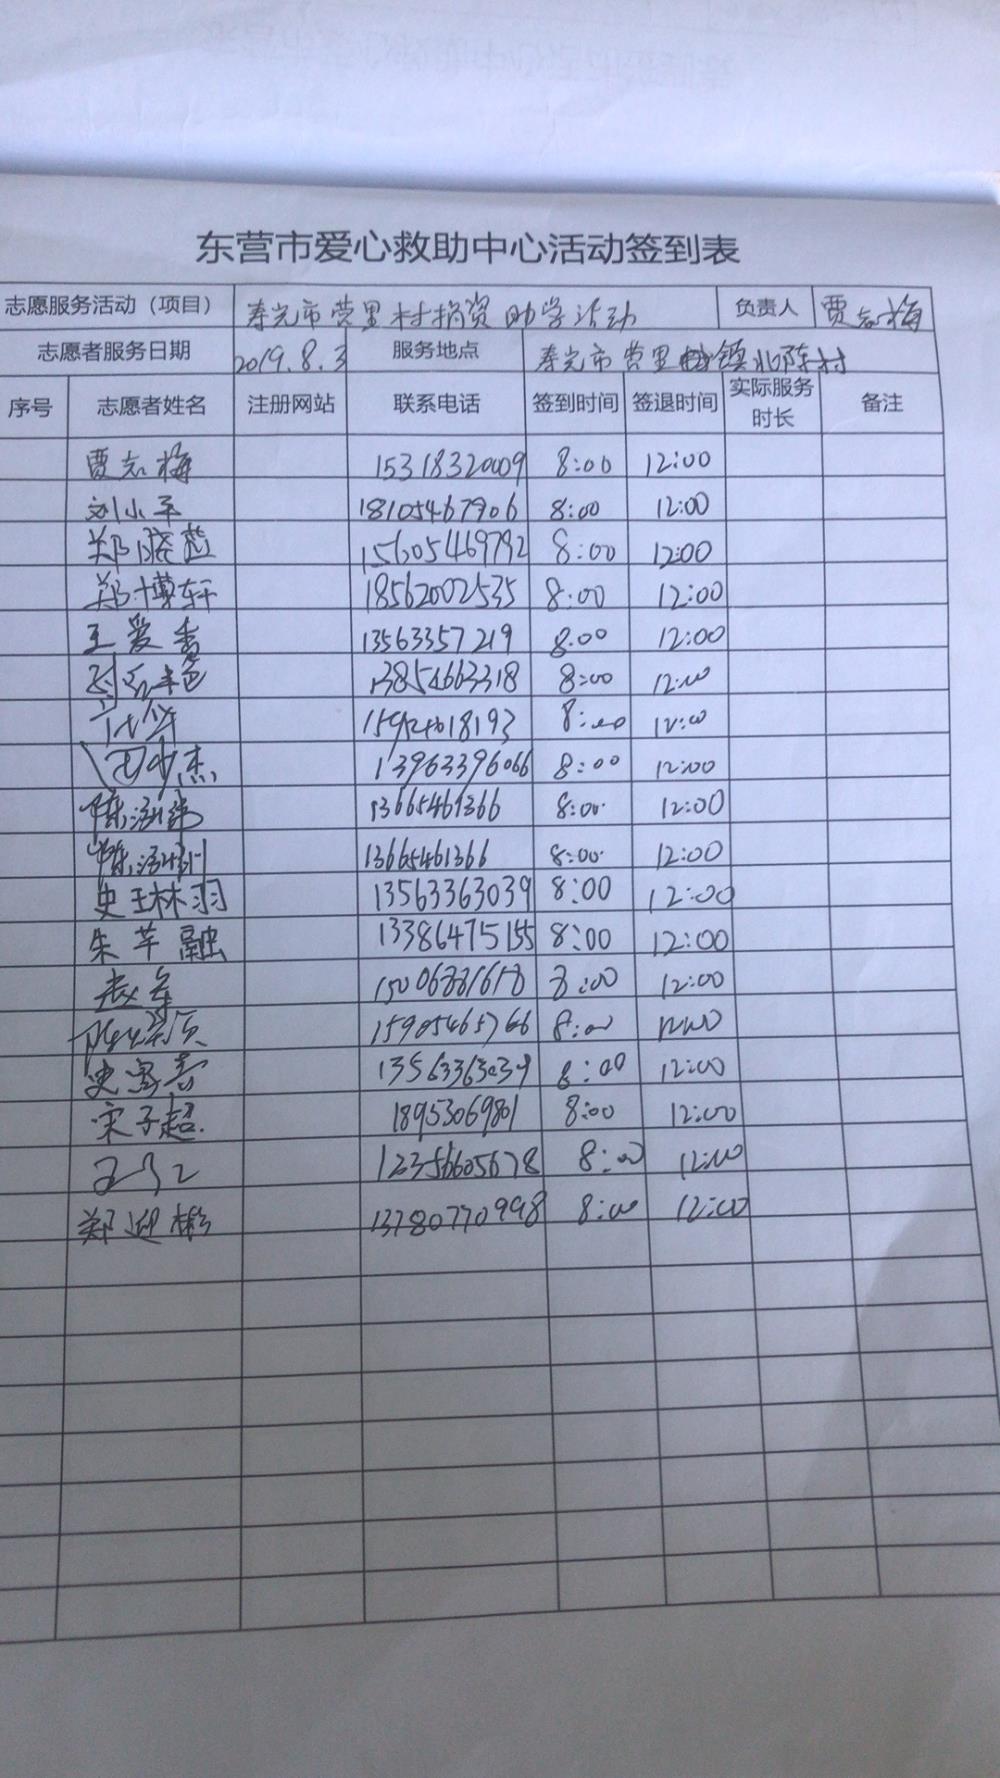 东营市爱心救助中心活动签到表
志愿服务活动（项目） 寿光市营里村捐资助学活动 负责人 贾志梅
志愿者服务日期 2019.8.3 服务地点 寿光市营里镇北陈村
序号 志愿者姓名 注册网站 联系电话 签到时间 签退时间 实际服务时长 备注
贾志梅 15318320009 8:00 12:00
刘小平 18105467906 8:00 12:00
郑晓燕 8:00 12:00
郑博轩 18562002535 8:00 12:00
王爱香 13563357219 8:00 12:00
13854663318 8:00 12:00
8:00 12:00
13963396066 8:00 12:00
13665461366 8:00 12:00
13665461366 8:00 12:00
史琳羽 13563363039 8:00 12:00
朱芊融 13386475155 8:00 12:00
赵军 8:00 12:00
15905465766 8:00 12:00
13563363039 8:00 12:00
宋子超 18953069801 8:00 12:00
12356605678 8:00 12:00
郑迎彬 13780770998 8:00 12:00